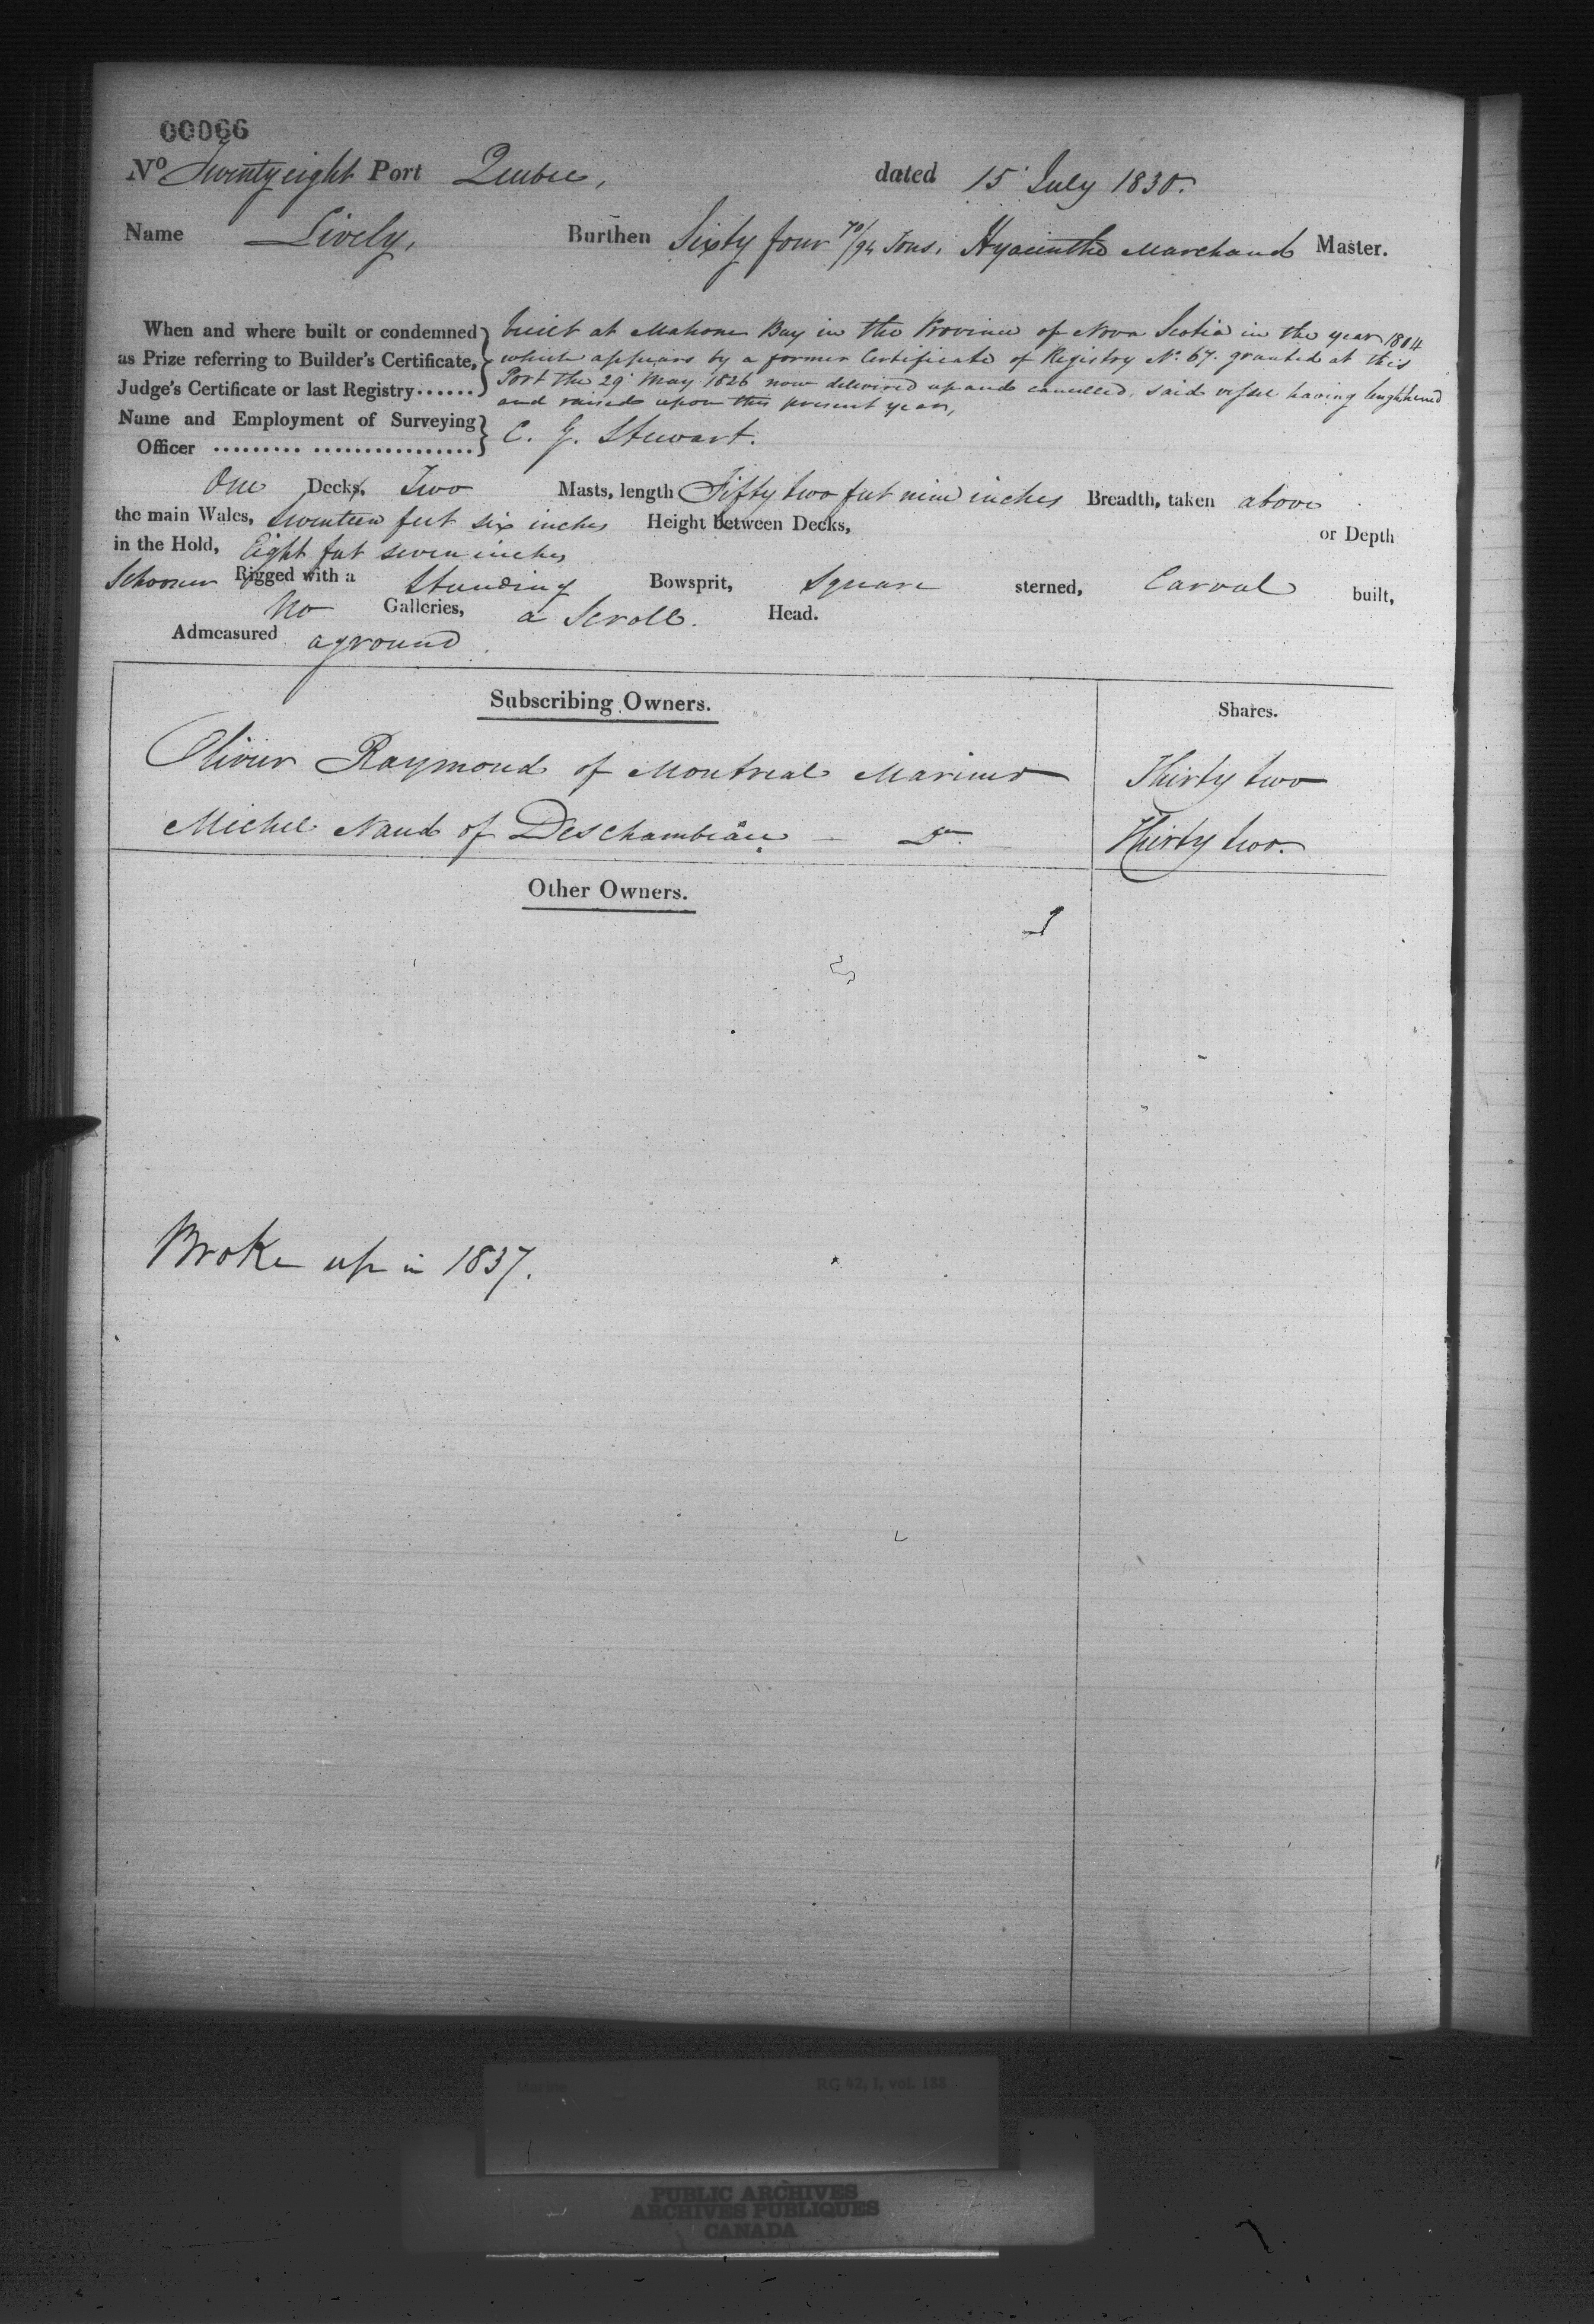 00066
No Twenty eight Port Quebec, dated 15 July 1830.
Name Lively, Burthen Sixty four 70/94 Tons, Hyacinthe Marchand Master.
When and where built or condemned built at Mahone Bay in the Province of Nova Scotia in the year 1814
as Prize referring to Builder's Certificate, which appears by a former Certificate of Registry No. 67. granted at this
Judge's Certificate or last Registry...... Port the 29 May 1826 now delivered up and cancelled, said vessel having lenghtened
and raised upon this present year,
Name and Employment of Surveying
Officer ......... ................ C. G. Stewart.
One Decks, Two Masts, length Fifty two feet nine inches Breadth, taken above
the main Wales, Seventeen feet six inches Height between Decks, or Depth
in the Hold, Eight feet seven inches
Schooner Rigged with a Standing Bowsprit, Square sterned, Carval built,
No Galleries, a Scroll. Head.
Admeasured aground.
Subscribing Owners. Shares.
Olivier Raymond of Montreal Mariner Thirty two
Michel Naud of Deschambeau - Do. Thirty two.
Other Owners.
Broke up in 1837.
Marine RG 42, I, vol. 188
PUBLIC ARCHIVES
ARCHIVES PUBLIQUES
CANADA